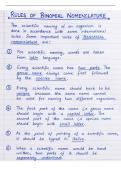 RULES OF BINOMIAL NOMENCLATURE
The scientific naming of an organism is
done in accordance with some international
rules. Some important rules of Binomial
nomenclature are:
① For scientific naming, words are taken
from Latin language.
② Every scientific name has two parts. The
genus name always come first followed
by the species name.
③ Every scientific name should have to be
unique, because the same name cannot
be used for naming two different organisms.
④ The first part of the name i.e. genus name
should begin with a capital letter. The
second part of the name i.e. species name
should begin with small letter.
⑤ At the point of printing of a scientific name,
it should be typed in italics.
⑥ When a scientific name should be hand
written, two parts of it should be
separately underlined.